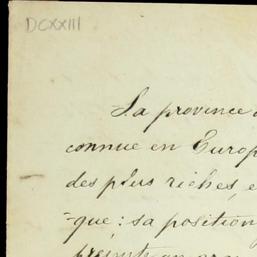 DCXXIII
La province
connue en Europ
des plus riches, e
que : sa position